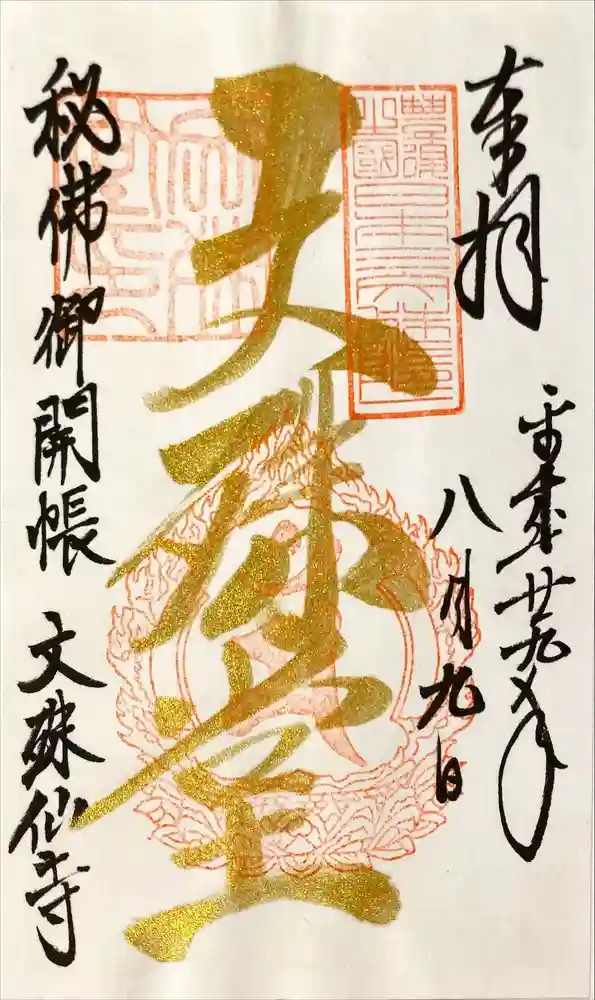 奉拝
平成廿九年
八月九日
文殊堂
秘佛御開帳 文殊仙寺